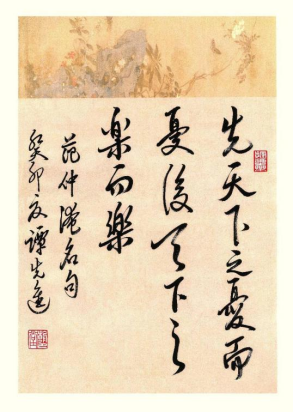 先天下之憂而
憂後天下之
樂而樂
范仲淹名句
癸卯夏譚先進